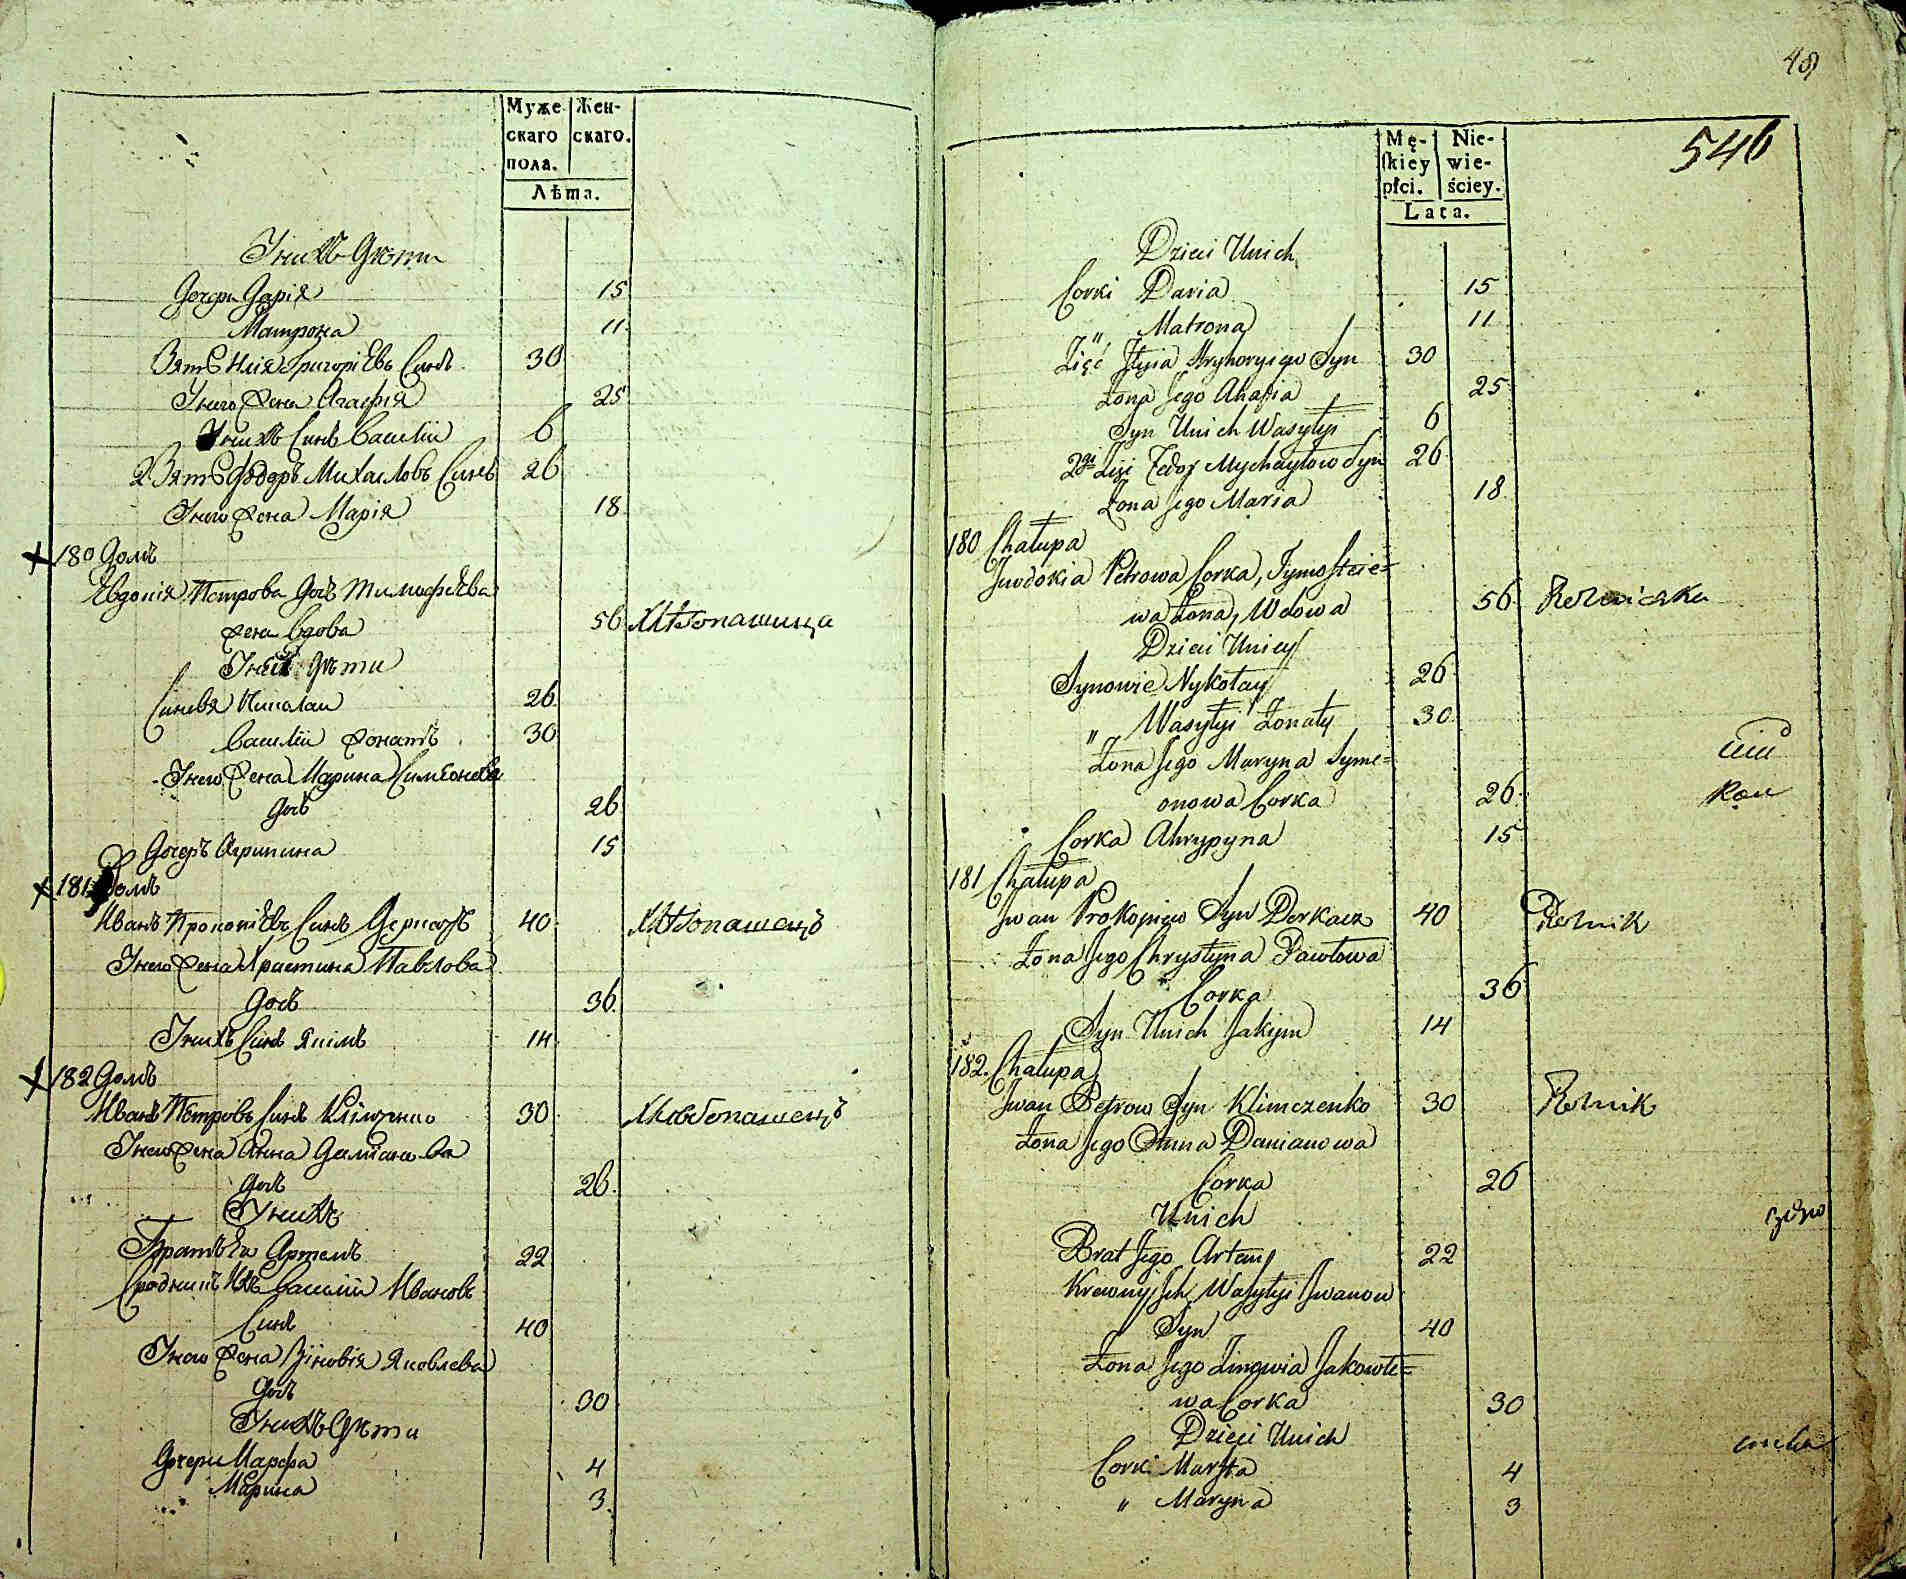 Муже Жен-
скаго скаго.
пола.
Лѣта.
У нихъ Дѣти
Дочери Дарія 15
Матрона 11
Зять Илія Григоріевъ Синъ 30
У него Жена Агафія 25
У нихъ Синъ Василій 6
2 Зять Ѳедоръ Михайловъ Синъ 26
У него Жена Марія 18
180 Домъ
Евдокія Петрова Дочь Тимофеѣва
Жена Вдова 56 Хлѣбопашица
У ней Дѣти
Синовя Николай 26
Василій Жонатъ 30
У него Жена Марина Симеонова
Дочь 26
Дочеръ Агрипина 15
181 Домъ
Иванъ Прокопіевъ Синъ Деркачъ 40 Хлѣбопашецъ
У него Жена Христина Павлова
Дочь 36
У нихъ Синъ Якимъ 14
182 Домъ
Иванъ Петровъ Синъ Клімченко 30 Хлебопашецъ
У него Жена Анна Даміанова
Дочь 26
У нихъ
Братъ Ев Артемъ 22
Сродникъ Ихъ Василій Ивановъ
Синъ 40
У него Жена Зіновія Яковлева
Дочь 30
У нихъ Дѣти
Дочери Марфа 4
Марина 3
48
546
Mę- Nie-
ſkiey wie-
płci. ściey.
Lata.
Dzieci Unich
Corki Daria 15
„ Matrona 11
Zięć Jlyia Hryhoryiew Syn 30
Żona Jego Ahafia 25
Syn Unich Wasylyi 6
2gi Zięć Fedor Mychayłow Syn 26
Żona jego Maria 18
180 Chałupa
Jwdokia Petrowa Corka, Tymofteie=
wa Żona, Wdowa 56 Rolniczka
Dzieci Uniey
Synowie Nykołay 26
„ Wasylyi Żonaty 30
Żona Jego Maryna Syme=
onowa Corka 26
Corka Ahrypyna 15
181 Chałupa
Jwan Prokopiew Syn Derkacz 40 Rolnik
Żona Jego Chrystyna Pawłowa
Corka 36
Syn Unich Jakym 14
182. Chałupa
Jwan Petrow Syn Klimczenko 30 Rolnik
Żona Jego Anna Damianowa
Corka 26
Unich
Brat Jego Artem 22
Krewny Jch Wasylyi Jwanow
Syn 40
Żona Jego Zinowia Jakowle=
wa Corka 30
Dzieci Unich
Corki Marfta 4
„ Maryna 3